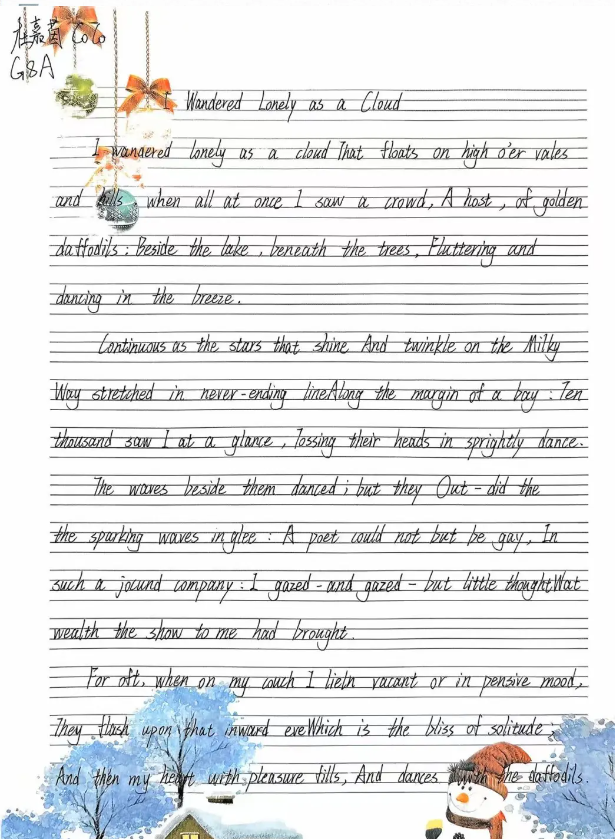 杜嘉茵 CoCo
G8A
I Wandered Lonely as a Cloud
I wandered lonely as a cloud That floats on high o'er vales
and hills when all at once I saw a crowd, A host, of golden
daffodils: Beside the lake, beneath the trees, Fluttering and
dancing in the breeze.
Continuous as the stars that shine And twinkle on the Milky
Way stretched in never-ending lineAlong the margin of a bay: Ten
thousand saw I at a glance, Tossing their heads in sprightly dance.
The waves beside them danced; but they Out-did the
the sparking waves in glee: A poet could not but be gay, In
such a jocund company: I gazed-and gazed-but little thoughtWat
wealth the show to me had brought.
For oft, when on my couch I lieIn vacant or in pensive mood,
They flash upon that inward eveWhich is the bliss of solitude;
And then my heart with pleasure fills, And dances with the daffodils.